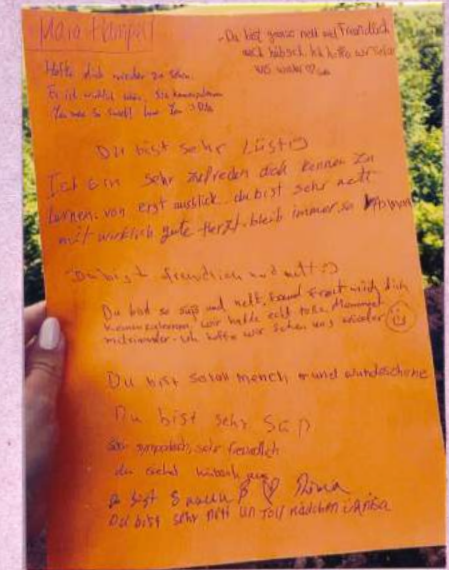 Maro Hampel
-Du bist ganse nett und Freundlich
auch hübsch. Ich hoffe wir sehen
uns wieder ♡
Hoffe dich wieder zu sehen.
Es ist wirklich schön,
You are so sweet! love You
Du bist sehr Lustig
Ich bin sehr zufreden dich kennen zu
lernen. von erst ausblick. du bist sehr nett
mit wirklich gute Herzt. bleib immer so
Du bist freundlich und nett :)
Du bist so süß und nett, freut mich dich
kennenzulernen, wir hatte echt tolle Momente
miteinander. Ich hoffe wir sehen uns wieder
Du bist so toll mench und wundeschöne
Du bist sehr süß
Sehr sympatisch, sehr freundlich
du siehst hübsch aus
Du bist Nina
Du bist sehr nett un toll Mädchen